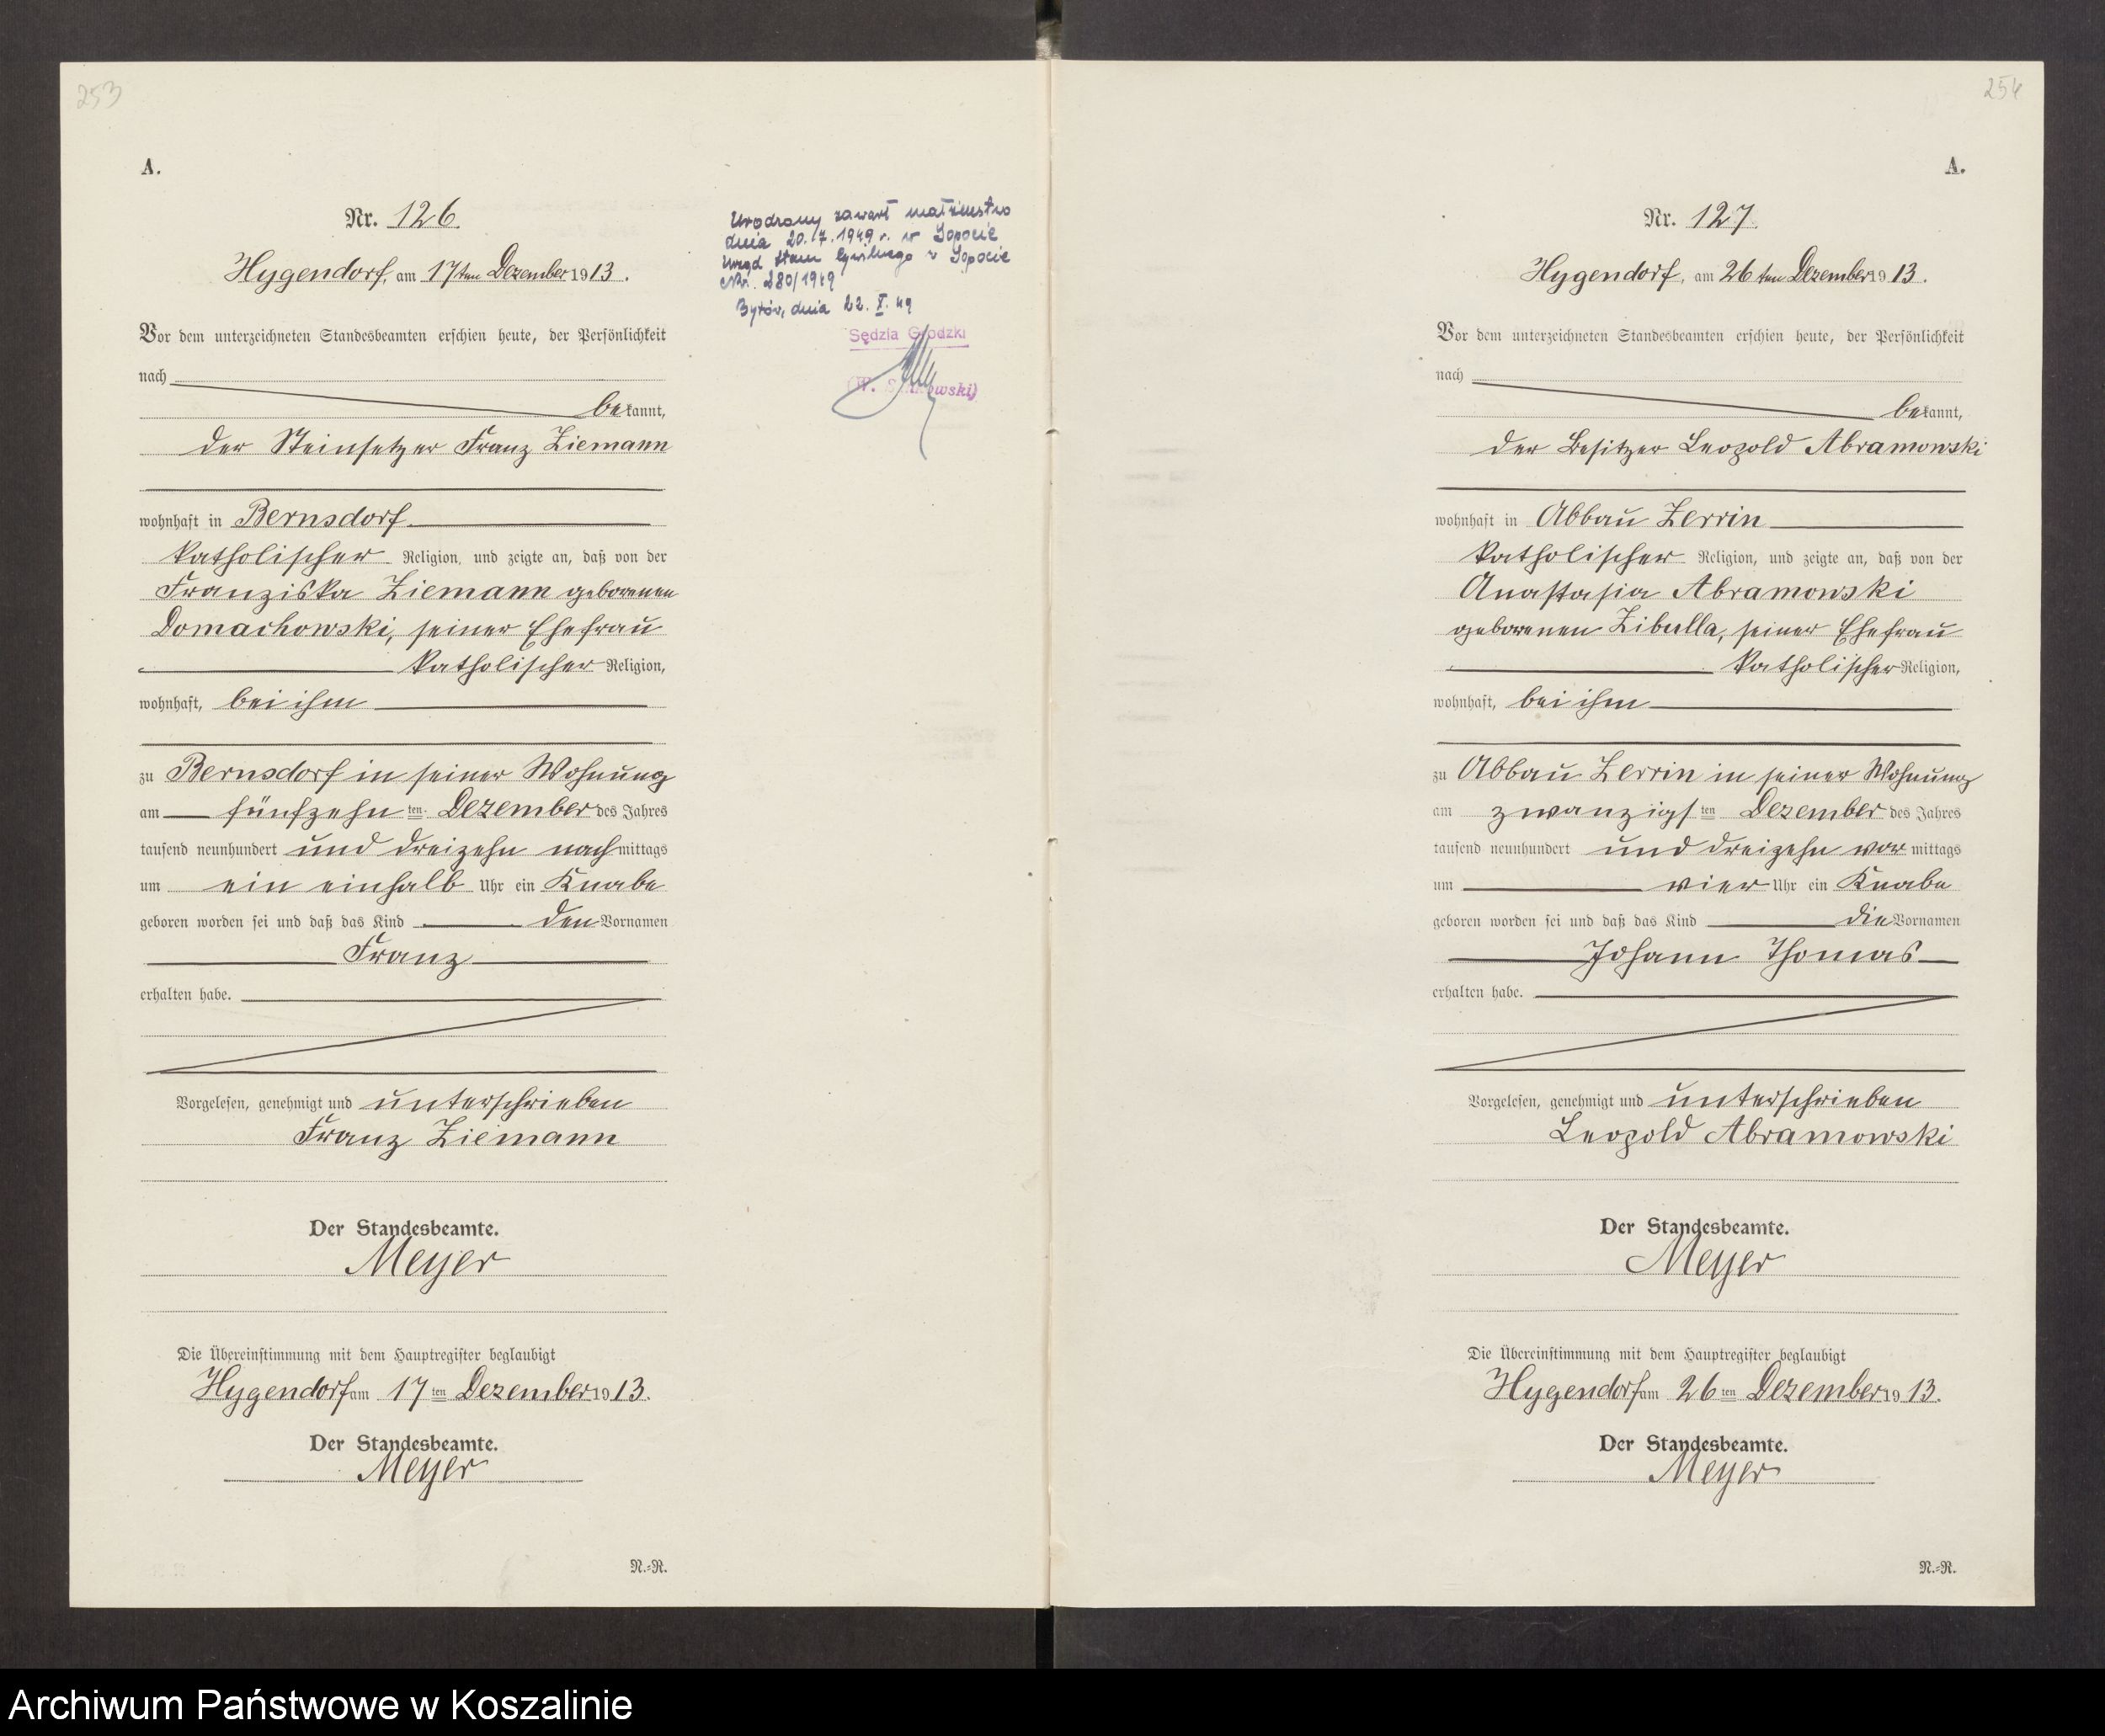 253
A.
Nr. 126.
Hygendorf, am 17ten Dezember 1913.
Vor dem unterzeichneten Standesbeamten erschien heute, der Persönlichkeit
nach
bekannt,
der Steinsetzer Franz Ziemann
wohnhaft in Bernsdorf
katholischer Religion, und zeigte an, daß von der
Franziska Ziemann geborenen
Domachowski, seiner Ehefrau
katholischer Religion,
wohnhaft, bei ihm
zu Bernsdorf in seiner Wohnung
am fünfzehnten Dezember des Jahres
tausend neunhundert und dreizehn nachmittags
um ein einhalb Uhr ein Knabe
geboren worden sei und daß das Kind den Vornamen
Franz
erhalten habe.
Vorgelesen, genehmigt und unterschrieben
Franz Ziemann
Der Standesbeamte.
Meyer
Die Übereinstimmung mit dem Hauptregister beglaubigt
Hygendorf am 17ten Dezember 1913.
Der Standesbeamte.
Meyer
N.-R.
Urodzony zawarł małżeństwo
dnia 20.7.1949 r. w Sopocie
Urząd Stanu Cywilnego w Sopocie
Nr. 280/1949
Bytów, dnia 22. X. 49
Sędzia Grodzki
254
A.
Nr. 127.
Hygendorf, am 26ten Dezember 1913.
Vor dem unterzeichneten Standesbeamten erschien heute, der Persönlichkeit
nach
bekannt,
der Besitzer Leopold Abramowski
wohnhaft in Abbau Zerrin
katholischer Religion, und zeigte an, daß von der
Anastasia Abramowski
geborenen Zibulla, seiner Ehefrau
katholischer Religion,
wohnhaft, bei ihm
zu Abbau Zerrin in seiner Wohnung
am zwanzigsten Dezember des Jahres
tausend neunhundert und dreizehn vormittags
um vier Uhr ein Knabe
geboren worden sei und daß das Kind die Vornamen
Johann Thomas
erhalten habe.
Vorgelesen, genehmigt und unterschrieben
Leopold Abramowski
Der Standesbeamte.
Meyer
Die Übereinstimmung mit dem Hauptregister beglaubigt
Hygendorf am 26ten Dezember 1913.
Der Standesbeamte.
Meyer
N.-R.
Archiwum Państwowe w Koszalinie